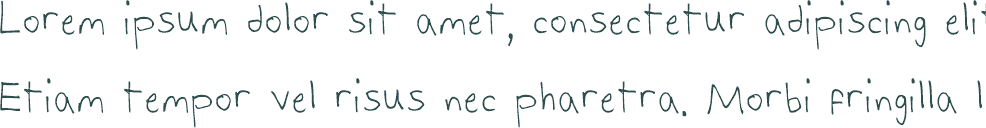 Lorem ipsum dolor sit amet, consectetur adipiscing elit
Etiam tempor vel risus nec pharetra. Morbi fringilla l